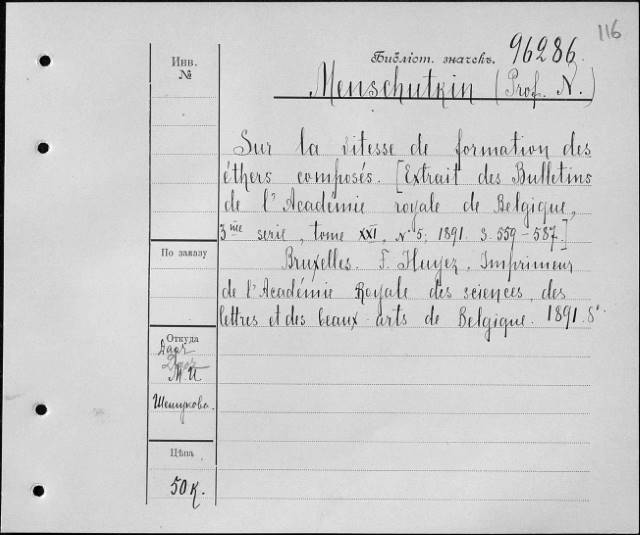 116
Инв.
№
Библіот. значекъ. 96286
Menschutkin (Prof. N.)
Sur la vitesse de formation des
éthers composés. [Extrait des Bulletins
de l'Académie royale de Belgique,
3me serie, tome XXI, № 5; 1891. S. 559-587.]
Bruxelles. F. Hayez, Imprimeur
de l'Académie Royale des sciences, des
lettres et des beaux-arts de Belgique. 1891. 8°.
По заказу
Откуда
М. И
Шешукова.
Цѣна
50 к.